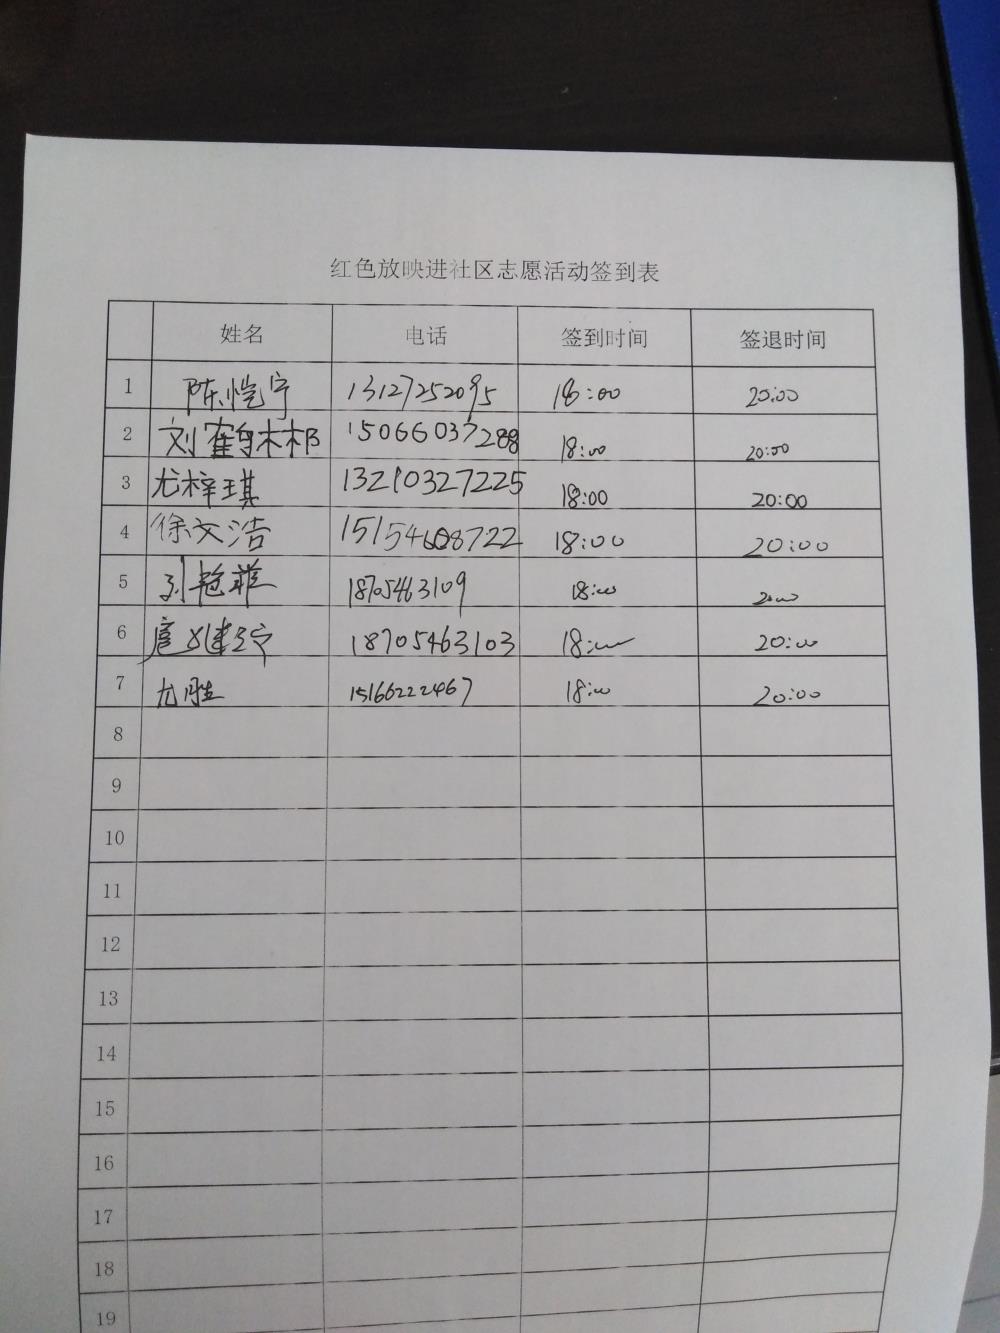 红色放映进社区志愿活动签到表
姓名 电话 签到时间 签退时间
1 陈恺宁 13127252095 18:00 20:00
2 刘鹤彬 15066037288 18:00 20:00
3 尤梓琪 13210327225 18:00 20:00
4 徐文浩 15154608722 18:00 20:00
5 刘艳菲 18705463109 18:00 20:00
6 18705463103 18:00 20:00
7 尤胜 15166222467 18:00 20:00
8
9
10
11
12
13
14
15
16
17
18
19